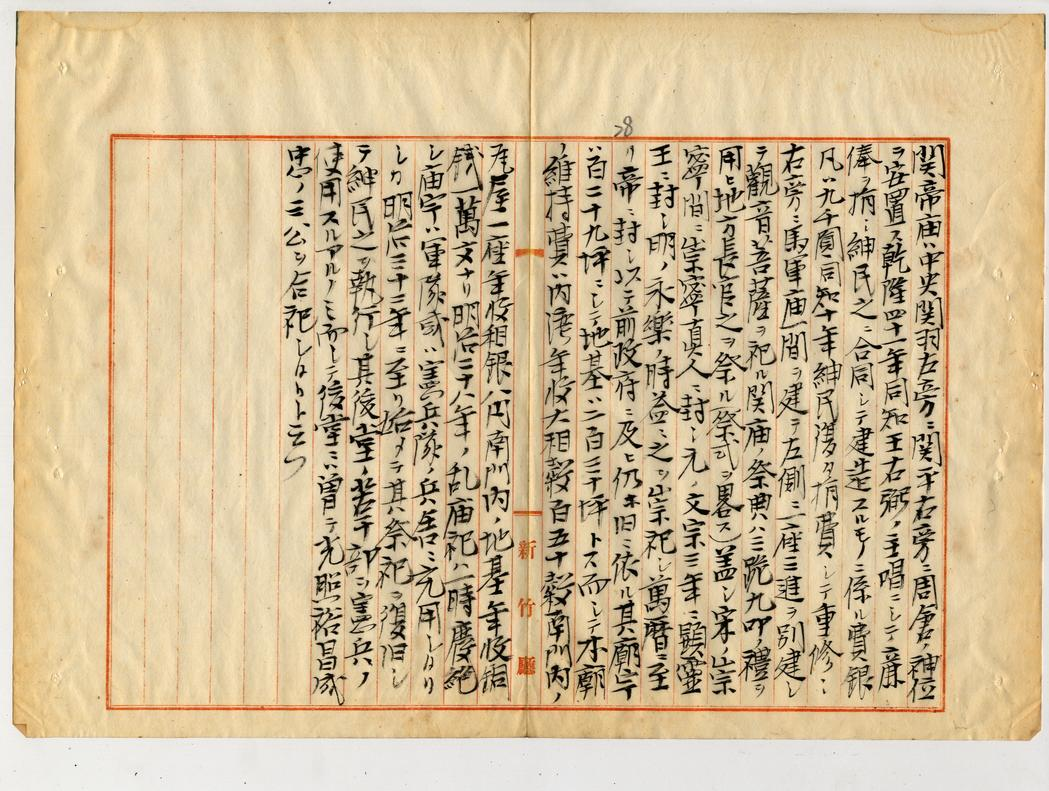 28
関帝庙ハ中央関羽左旁ニ関平右旁ニ周倉ノ神位
ヲ安置ス乾隆四十一年同知王右弼ノ主唱ニシテ廉
俸ヲ捐シ紳民之ニ合同シテ建造スルモノニ係ル費銀
凡ハ九千圓同知十年紳民復タ捐費シテ重修シ
右旁ニ馬軍庙一間ヲ建テ左側ニ二座三進ヲ別建シ
テ觀音菩薩ヲ祀ル関庙ノ祭典ハ三跪九叩ノ禮ヲ
用ヒ地方長官之ヲ祭ル(祭式ヲ畧ス)蓋シ宋ノ崇
寧間ニ崇寧真人ニ封シ元ノ文宗三年ニ顕霊
王ニ封シ明ノ永樂ノ時益ニ之ヲ崇祀シ萬暦ニ至
リ帝ニ封シ以テ前政府ニ及ヒ仍ホ旧ニ依ル其廟宇
ハ百二十九坪ニシテ地基ハ二百三十坪トス而シテ本廟
ノ維持費ハ内湾年收大租穀百五十穀南門内ノ
瓦屋二座年收租銀八円南門内ノ地基年收銅
銭一萬文ナリ明治二十八年ノ乱庙祀ハ一時慶絶
シ庙宇ハ軍隊或ハ憲兵隊ノ兵舎ニ充用シタリ
シカ明治三十三年ニ至リ始メテ其祭祀ヲ復旧シ
テ紳民之ヲ執行シ其後堂ノ若干部ヲ憲兵ノ
使用スルアルノミ而シテ後堂ニハ曽テ光照裕昌成
忠ノ三公ヲ合祀シタリト云フ
新竹廳